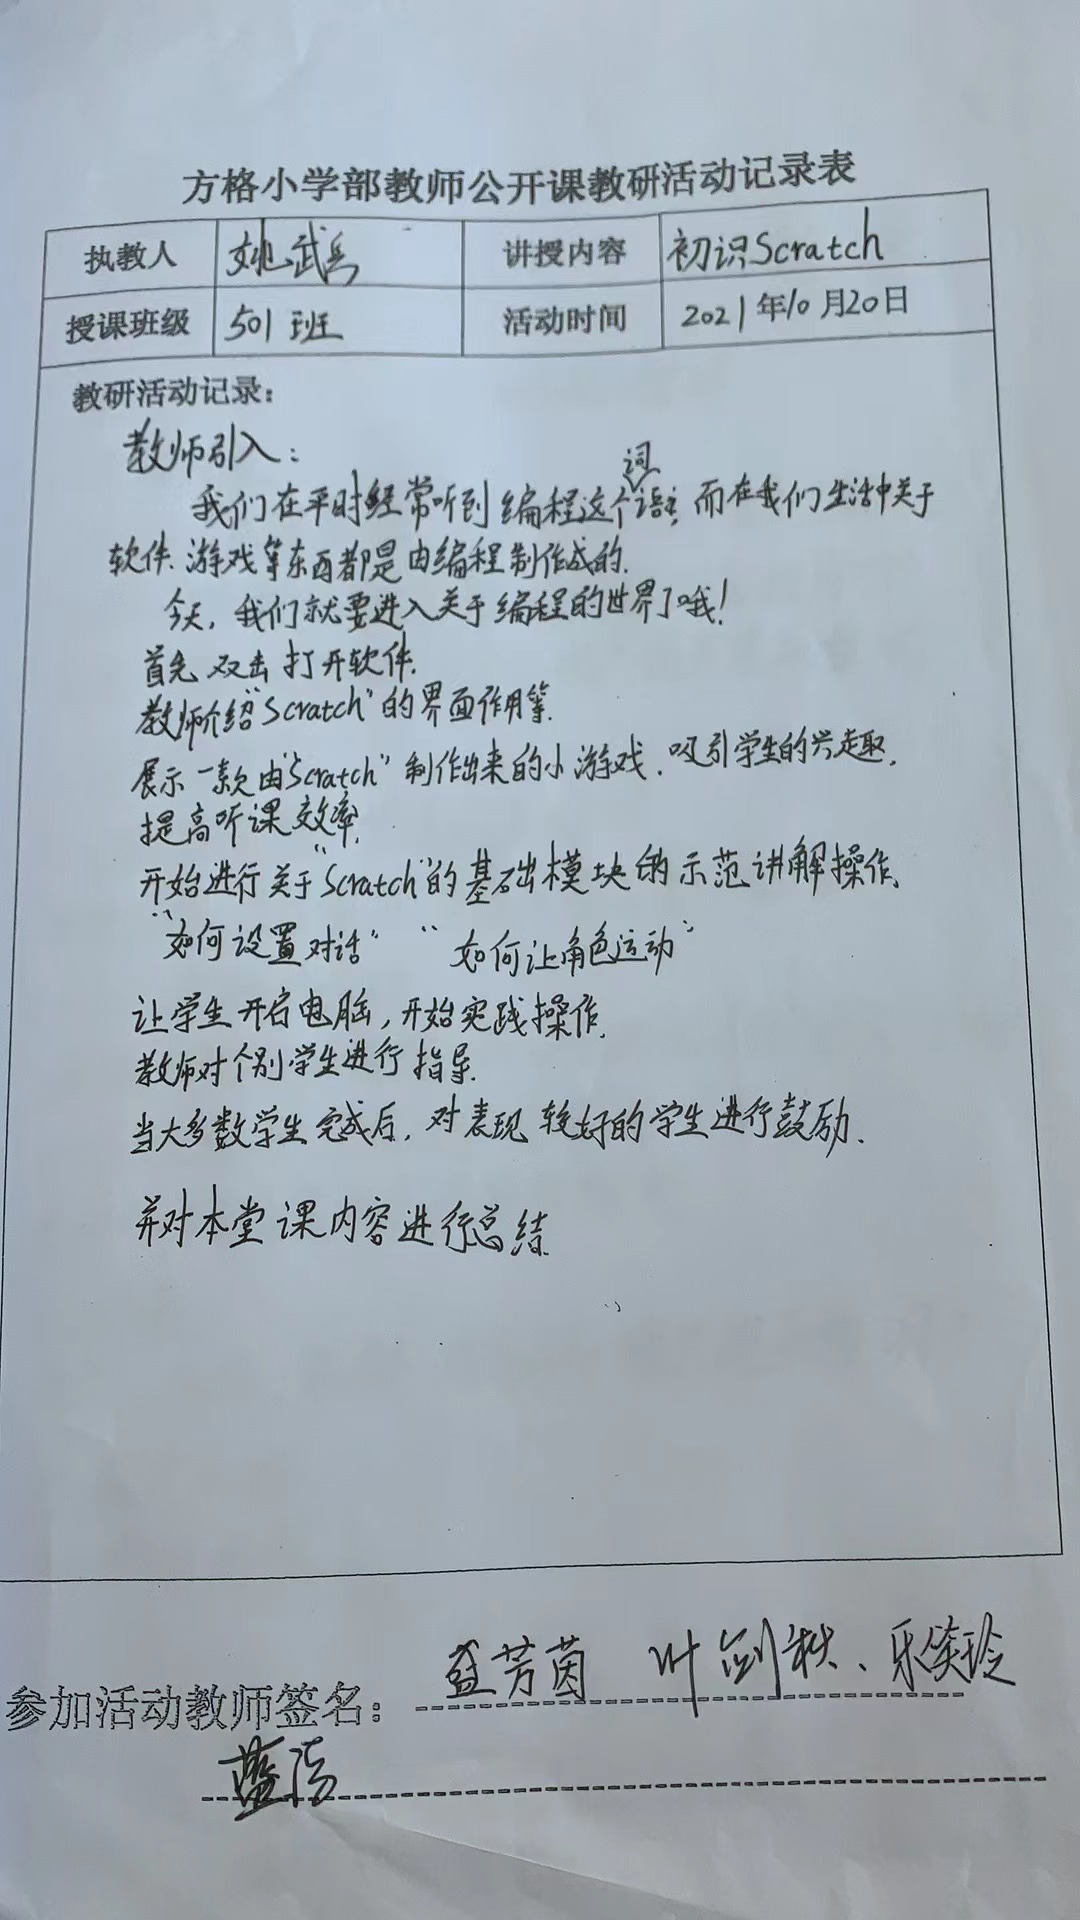 方格小学部教师公开课教研活动记录表
执教人 姚武兵 讲授内容 初识Scratch
授课班级 501班 活动时间 2021年10月20日
教研活动记录：
教师引入：
我们在平时经常听到编程这个词语，而在我们生活中关于
软件、游戏等东西都是由编程制作成的.
今天，我们就要进入关于编程的世界了哦！
首先双击打开软件.
教师介绍“Scratch”的界面作用等.
展示一款由“Scratch”制作出来的小游戏、吸引学生的兴趣，
提高听课效率.
开始进行关于“Scratch”的基础模块的示范讲解操作、
“如何设置对话” “如何让角色运动”
让学生开启电脑，开始实践操作.
教师对个别学生进行指导.
当大多数学生完成后，对表现较好的学生进行鼓励.
并对本堂课内容进行总结.
参加活动教师签名： 芳茵 叶剑秋、乐笑玲
蓝